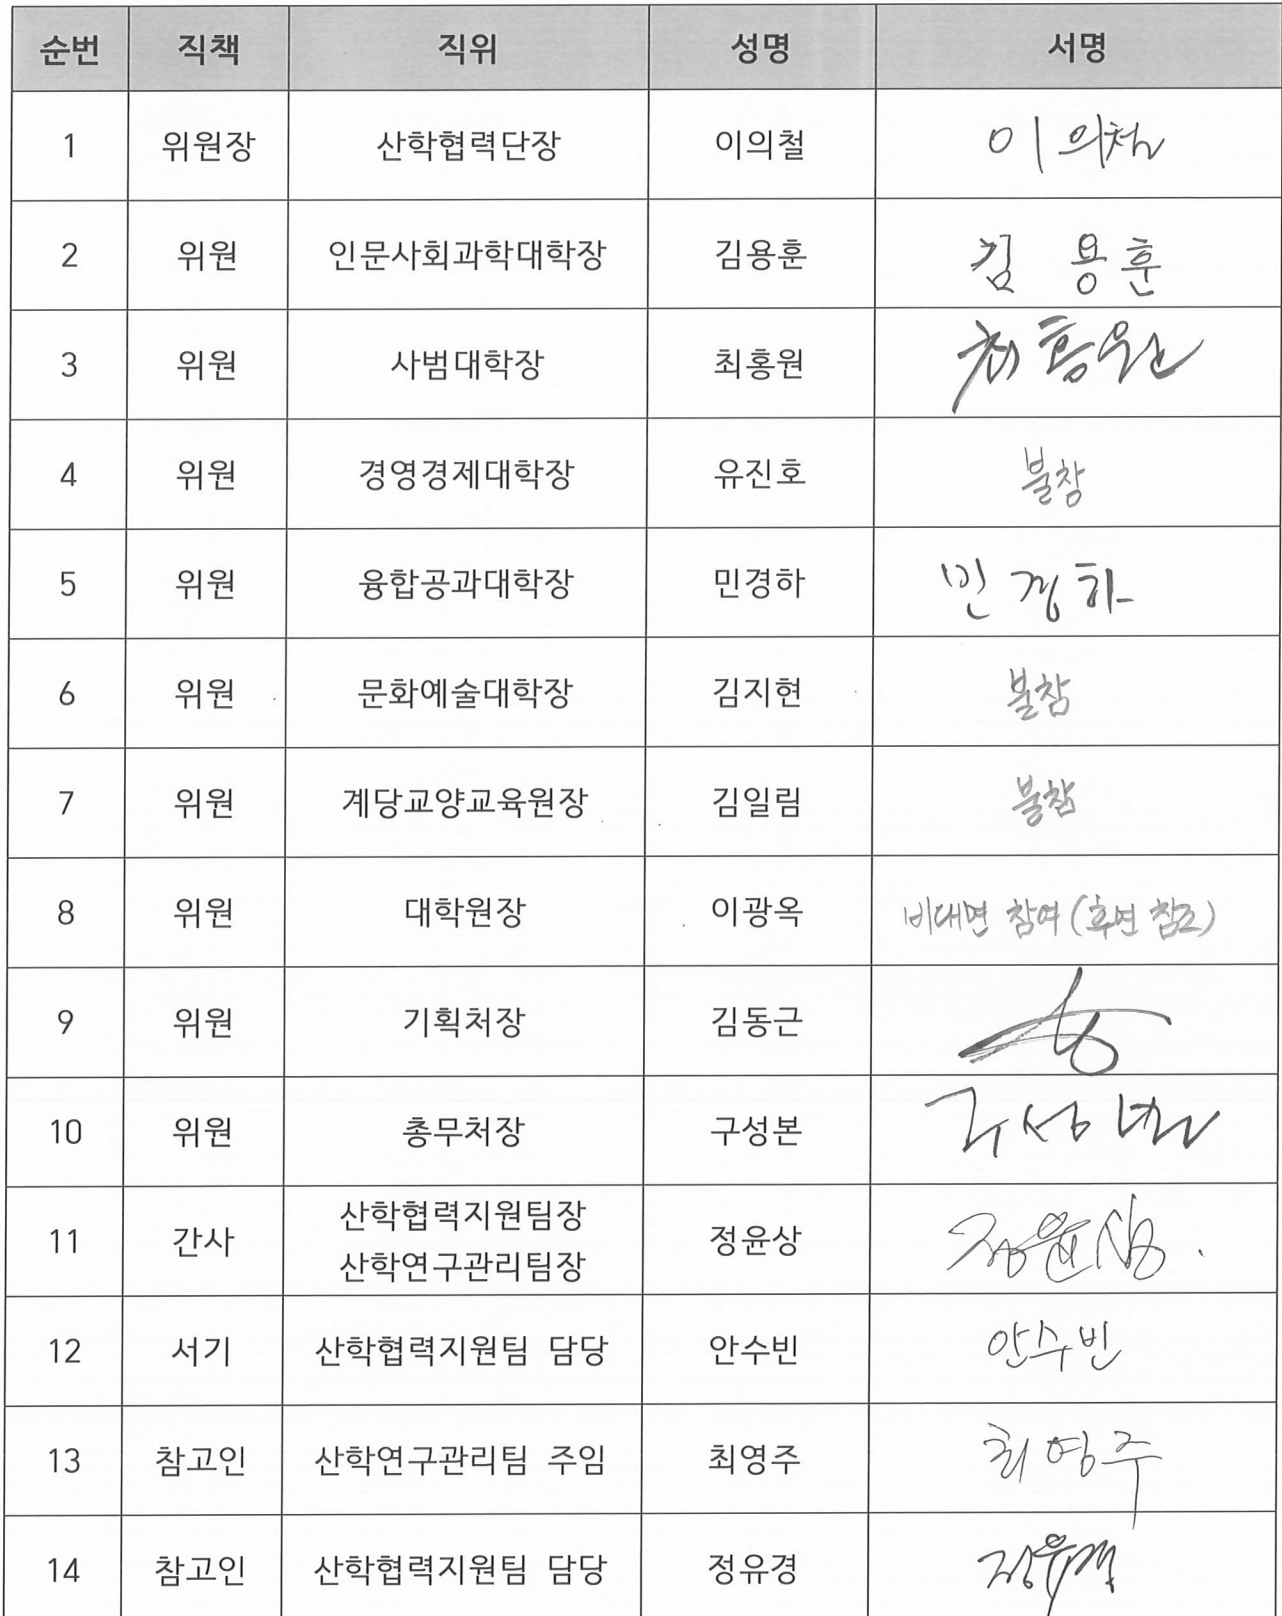 순번 직책 직위 성명 서명
1 위원장 산학협력단장 이의철 이의철
2 위원 인문사회과학대학장 김용훈 김 용훈
3 위원 사범대학장 최홍원 최홍원
4 위원 경영경제대학장 유진호 불참
5 위원 융합공과대학장 민경하 민경하
6 위원 문화예술대학장 김지현 불참
7 위원 계당교양교육원장 김일림 불참
8 위원 대학원장 이광옥 비대면 참여(후면 참조)
9 위원 기획처장 김동근
10 위원 총무처장 구성본 구성본
11 간사 산학협력지원팀장
산학연구관리팀장 정윤상 정윤상.
12 서기 산학협력지원팀 담당 안수빈 안수빈
13 참고인 산학연구관리팀 주임 최영주 최영주
14 참고인 산학협력지원팀 담당 정유경 정유경